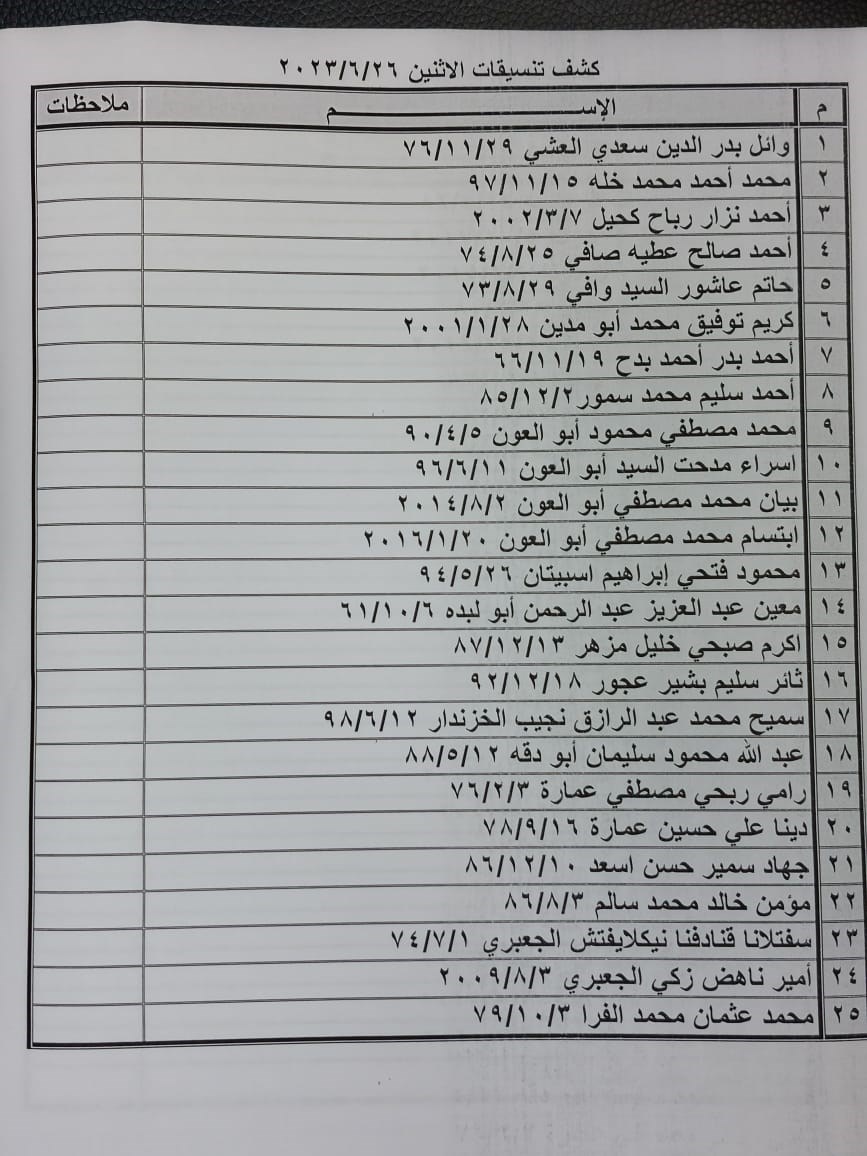 كشف تنسيقات الاثنين ٢٠٢٣/٦/٢٦
م الإســـــــــم ملاحظات
١ وائل بدر الدين سعدي العشي ٧٦/١١/٢٩
٢ محمد أحمد محمد خله ٩٧/١١/١٥
٣ أحمد نزار رباح كحيل ٢٠٠٢/٣/٧
٤ أحمد صالح عطيه صافي ٧٤/٨/٢٥
٥ حاتم عاشور السيد وافي ٧٣/٨/٢٩
٦ كريم توفيق محمد أبو مدين ٢٠٠١/١/٢٨
٧ أحمد بدر أحمد بدح ٦٦/١١/١٩
٨ أحمد سليم محمد سمور ٨٥/١٢/٢
٩ محمد مصطفي محمود أبو العون ٩٠/٤/٥
١٠ اسراء مدحت السيد أبو العون ٩٦/٦/١١
١١ بيان محمد مصطفي أبو العون ٢٠١٤/٨/٢
١٢ ابتسام محمد مصطفي أبو العون ٢٠١٦/١/٢٠
١٣ محمود فتحي إبراهيم اسبيتان ٩٤/٥/٢٦
١٤ معين عبد العزيز عبد الرحمن أبو لبده ٦١/١٠/٦
١٥ اكرم صبحي خليل مزهر ٨٧/١٢/١٣
١٦ ثائر سليم بشير عجور ٩٢/١٢/١٨
١٧ سميح محمد عبد الرازق نجيب الخزندار ٩٨/٦/١٢
١٨ عبد الله محمود سليمان أبو دقه ٨٨/٥/١٢
١٩ رامي ربحي مصطفي عمارة ٧٦/٢/٣
٢٠ دينا علي حسين عمارة ٧٨/٩/١٦
٢١ جهاد سمير حسن اسعد ٨٦/١٢/١٠
٢٢ مؤمن خالد محمد سالم ٨٦/٨/٣
٢٣ سفتلانا قنادفنا نيكلايفتش الجعبري ٧٤/٧/١
٢٤ أمير ناهض زكي الجعبري ٢٠٠٩/٨/٣
٢٥ محمد عثمان محمد الفرا ٧٩/١٠/٣